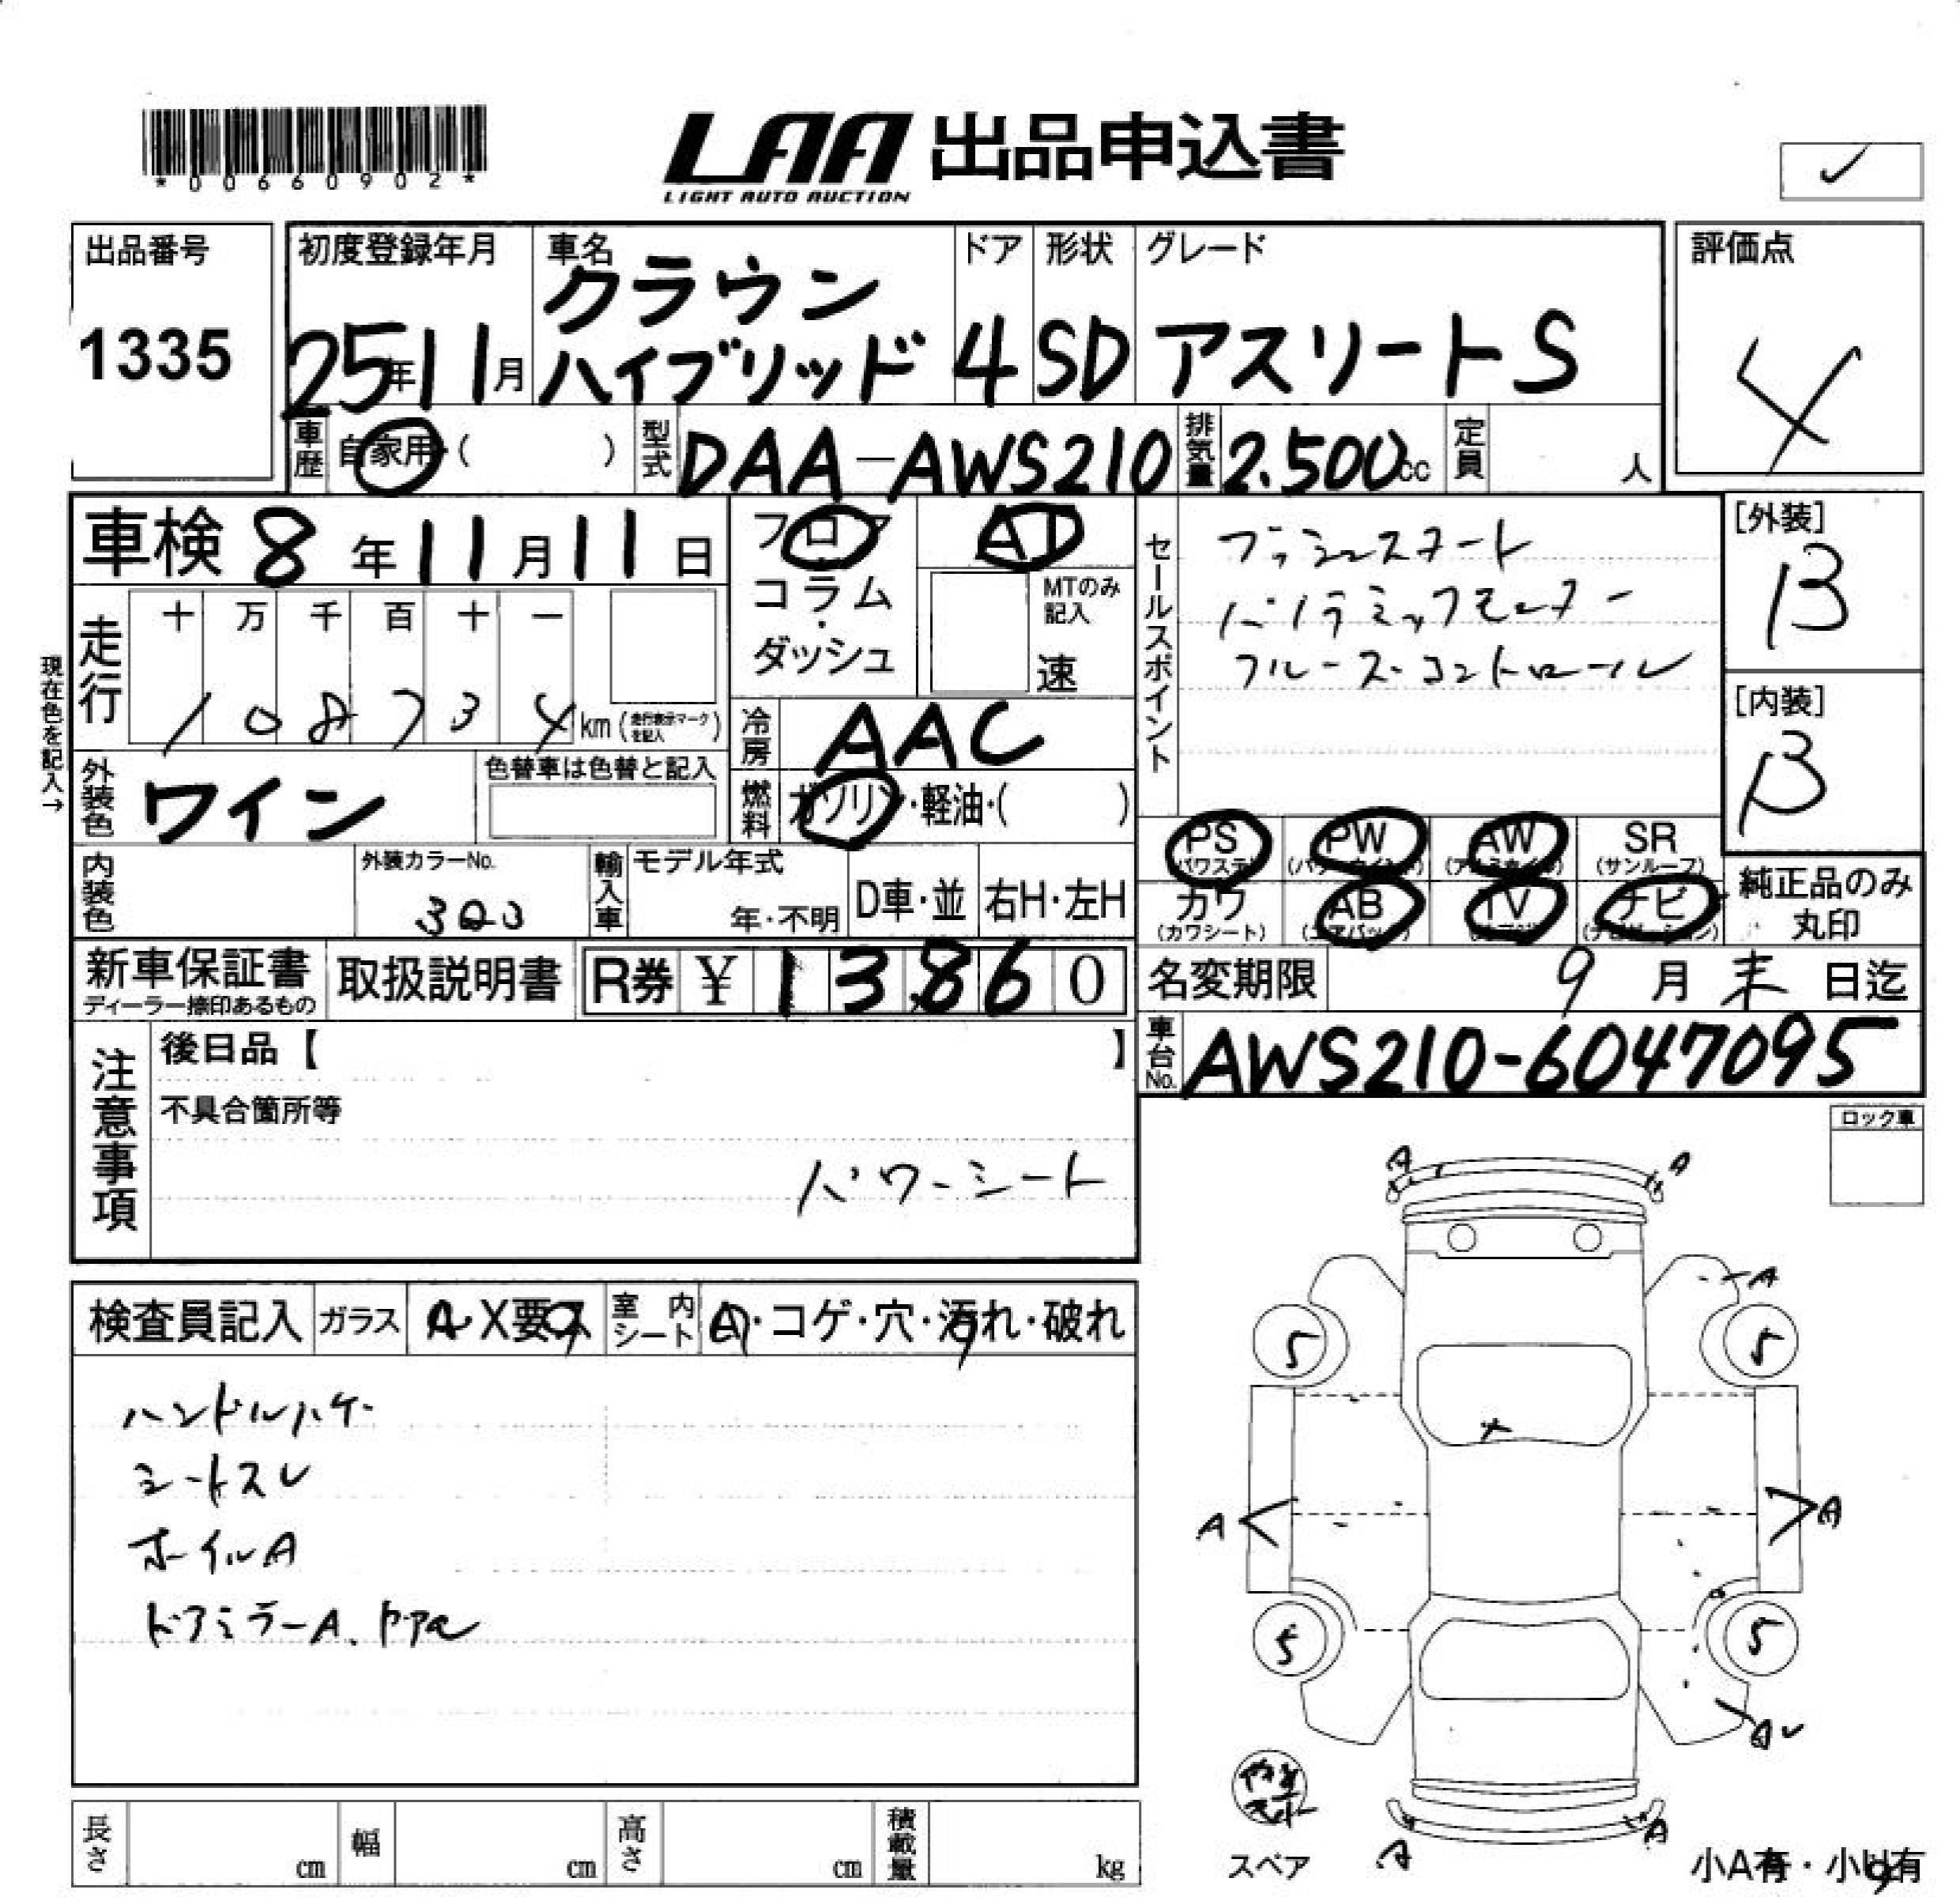 *00660902*
LAA 出品申込書
LIGHT AUTO AUCTION
出品番号
1335
初度登録年月
25年11月
車名
クラウン
ハイブリッド
ドア
4
形状
SD
グレード
アスリートS
評価点
4
車歴
自家用・( )
型式
DAA-AWS210
排気量
2.500cc
定員
人
車検 8年11月11日
フロア・コラム・ダッシュ
AT
MTのみ記入
速
セールスポイント
プッシュスタート
パノラミックモニター
クルーズコントロール
[外装]
B
[内装]
B
現在色を記入→
走行
十 万 千 百 十 一
108734km (走行表示マークを記入)
冷房
AAC
外装色
ワイン
色替車は色替と記入
燃料
ガソリン・軽油・( )
PS
(パワステ)
PW
(パワーウインド)
AW
(アルミホイル)
SR
(サンルーフ)
カワ
(カワシート)
AB
(エアバック)
TV
ナビ
(ナビゲーション)
純正品のみ
丸印
内装色
外装カラーNo.
3Q3
輸入車
モデル年式
年・不明
D車・並
右H・左H
新車保証書
ディーラー捺印あるもの
取扱説明書
R券 ¥13860
名変期限
9月末日迄
車台No.
AWS210-6047095
注意事項
後日品【 】
不具合箇所等
パワーシート
ロック車
検査員記入
ガラス
A・X要
室内シート
・コゲ・穴・汚れ・破れ
ハンドルハゲ
シートスレ
ホイルA
ドアミラーA、
A
A
A
5
5
A
A
5
5
A
A
スペア
小A有・小U有
長さ
cm
幅
cm
高さ
cm
積載量
kg